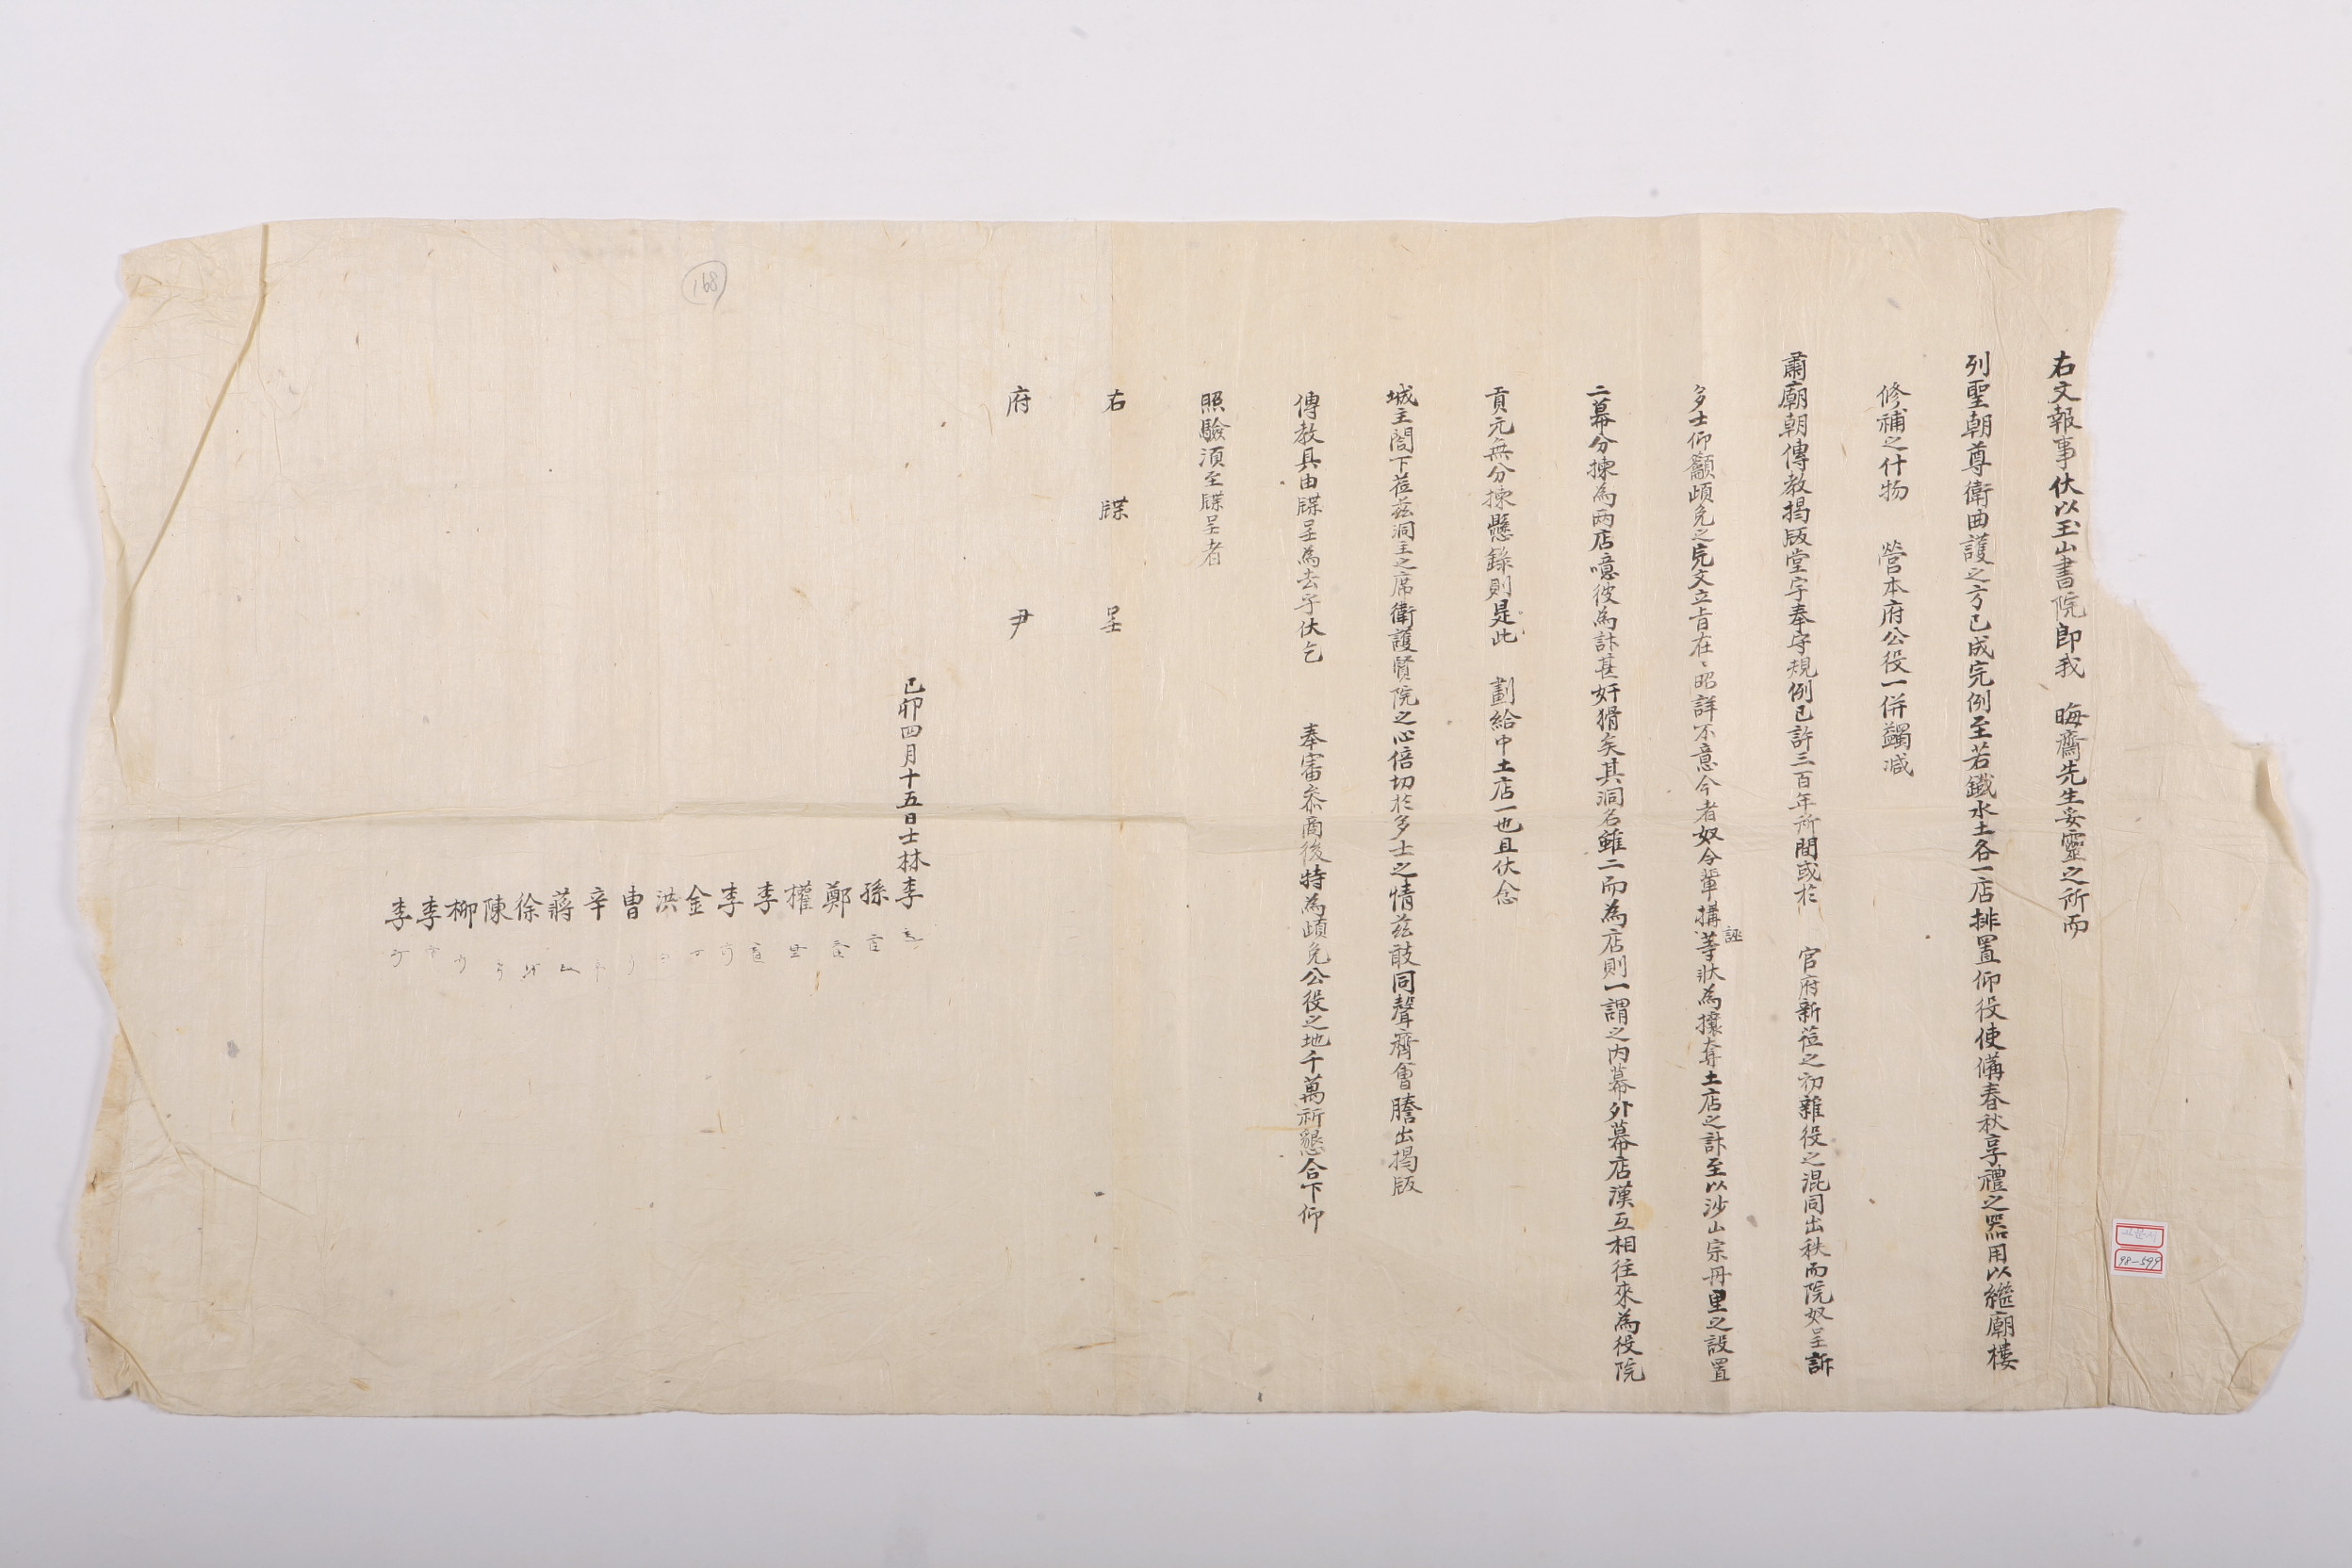 右文報事伏以玉山書院卽我 晦齋先生妥靈之所而
列聖朝尊衛曲護之方已成完例至若鐵水土各一店排置仰役使備春秋享禮之器用以繼廟樓
修補之什物 營本府公役一併蠲减
肅廟朝傳敎揭版堂宇奉守規例已許三百年所間或於 官府新莅之初雜役之混同出秩而院奴呈訴
多士仰籲頉免之完文立旨在〻昭詳不意今者奴令輩搆誣等狀為攘奪土店之計至以沙山宗丹里之設置
二幕分揀為兩店噫彼為計甚奸猾矣其洞名雖二而為店則一謂之內幕外幕店漢互相往來為役院
貢元無分揀懸錄則是此 劃給中土店一也且伏念
城主閤下莅玆洞主之席衛護賢院之心倍切於多士之情玆敢同聲齊會謄出揭版
傳敎具由牒呈為去乎伏乞 奉審叅商後特為頉免公役之地千萬祈懇合下仰
照驗湏至牒呈者
右 牒 呈
府 尹
己卯四月十五日士林李
孫
鄭
權
李
李
金
洪
曹
辛
蔣
徐
陳
柳
李
李
168
98-599